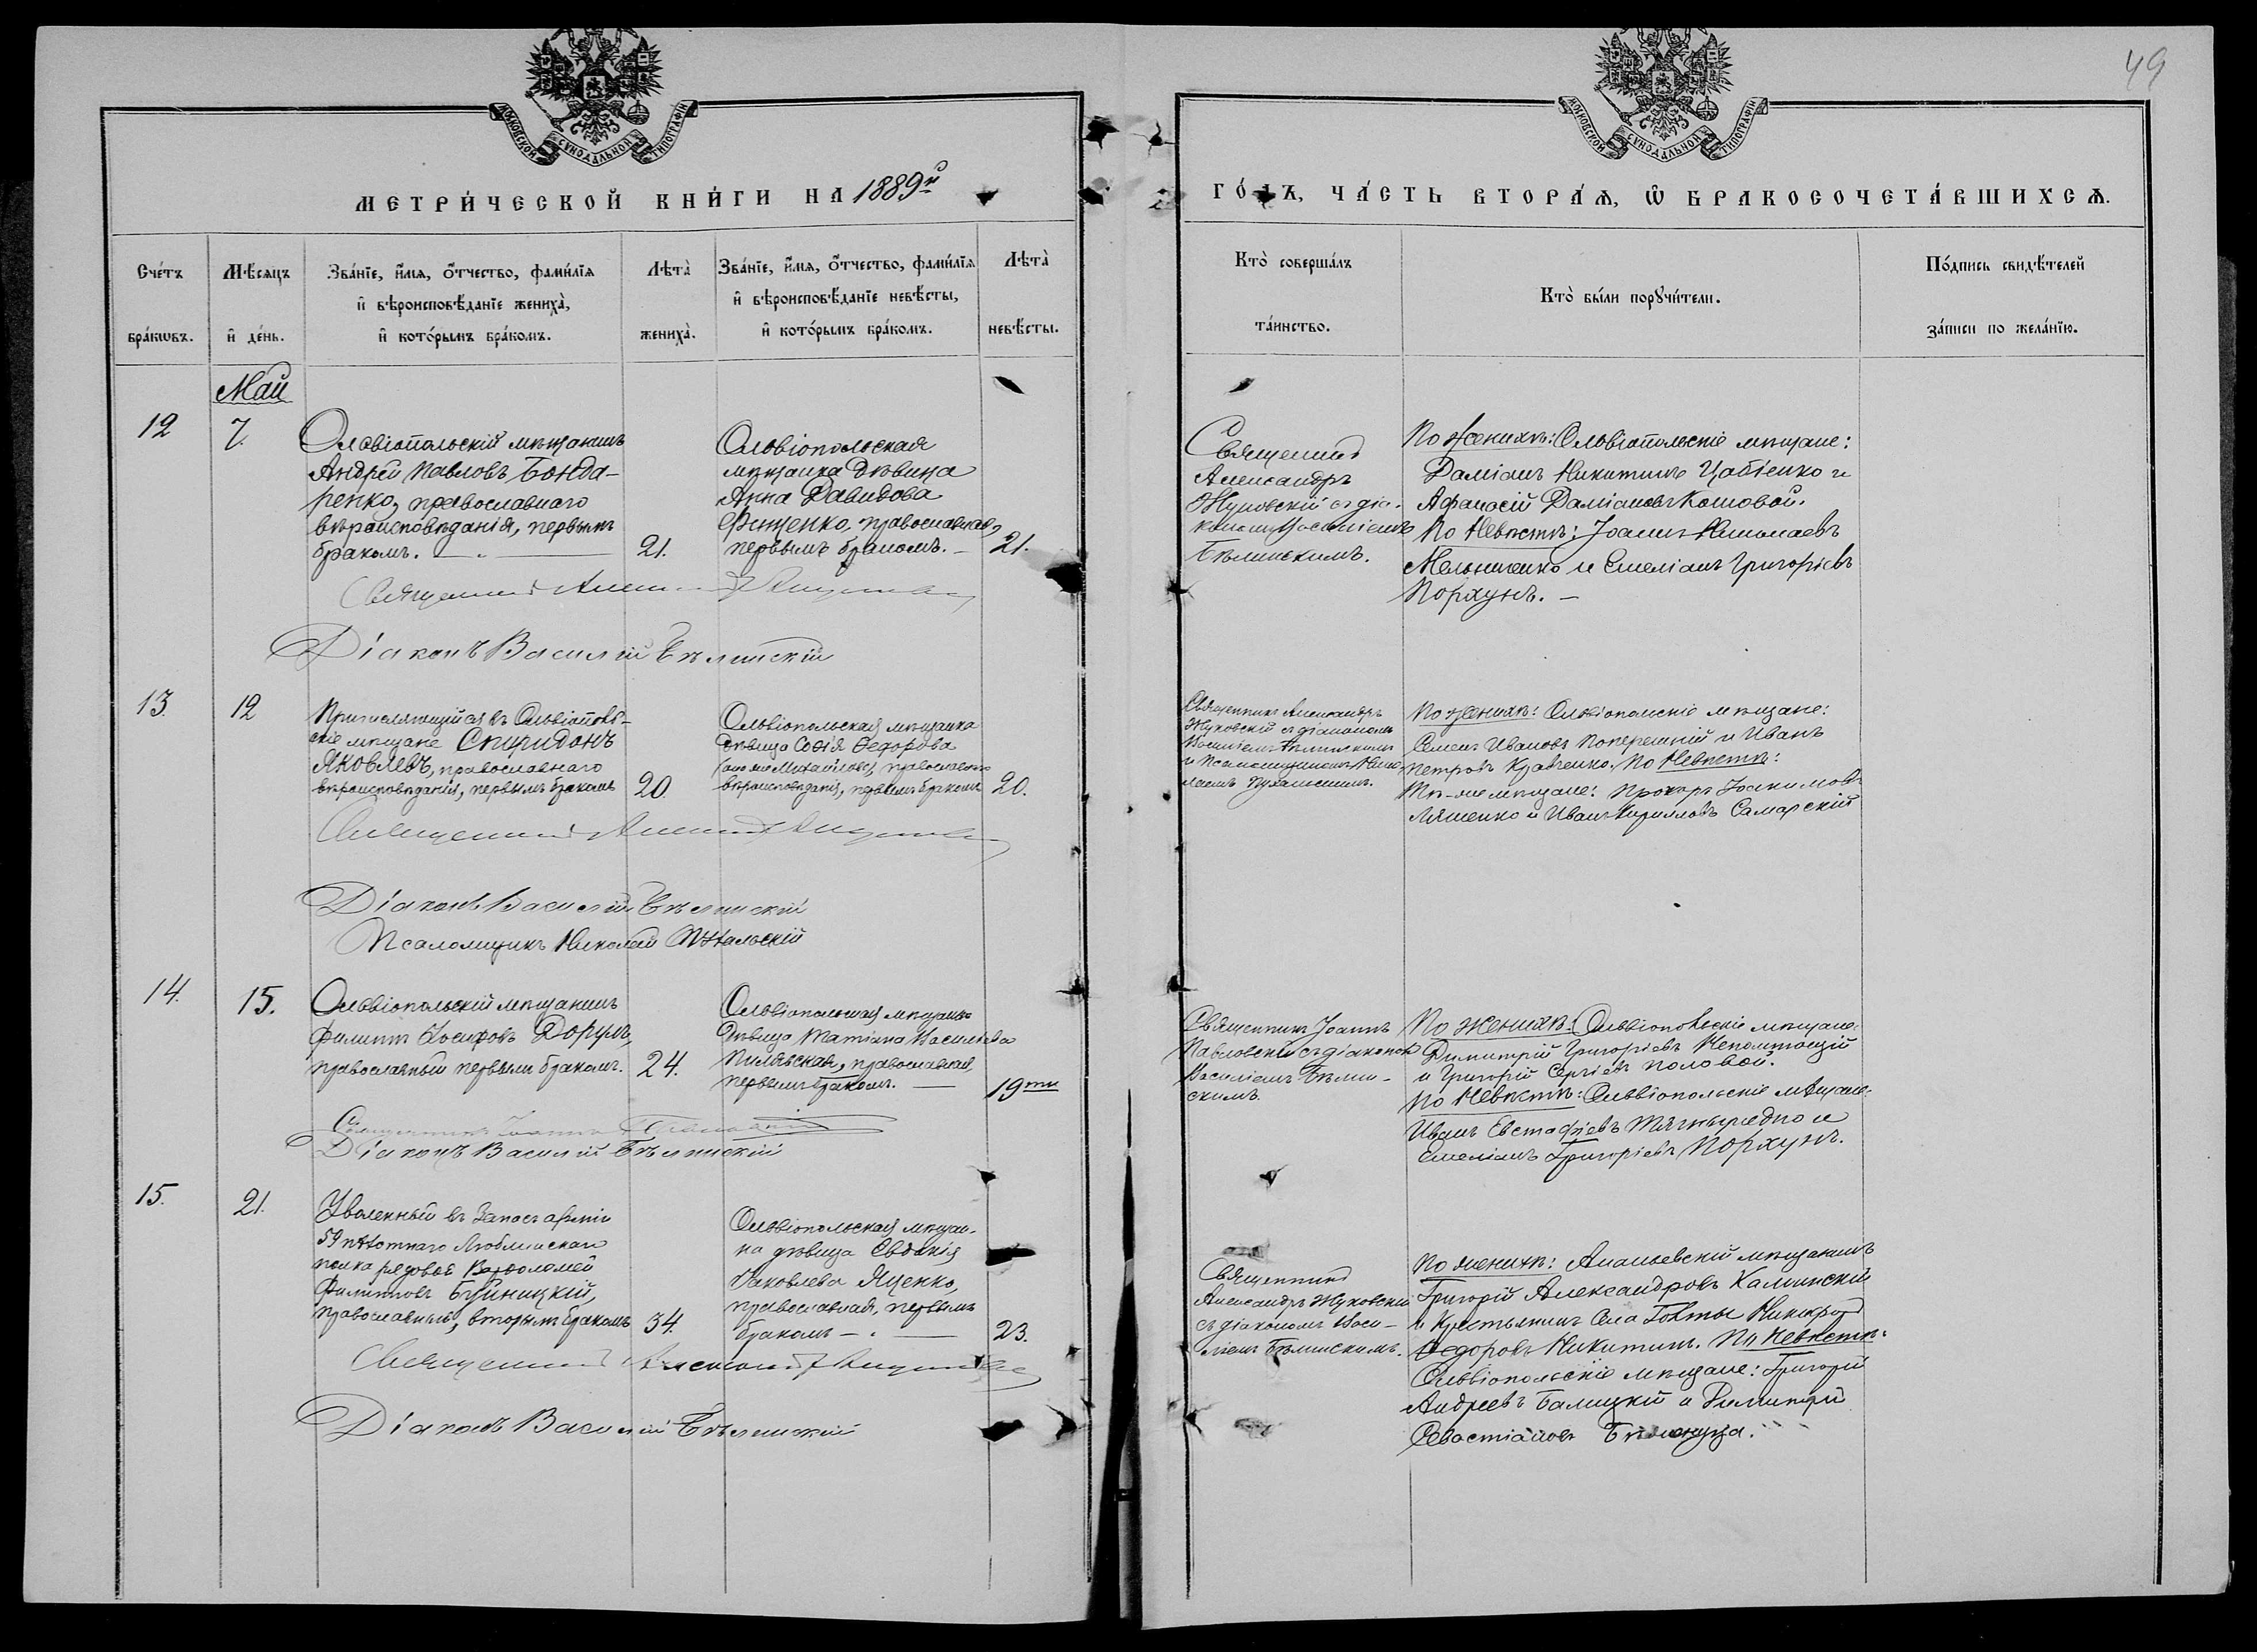 49
МОСКОВСКОЙ СУНОДАЛЬНОЙ ТИПОГРАФІИ
МОСКОВСКОЙ СУНОДАЛЬНОЙ ТИПОГРАФІИ
МЕТРИ́ЧЕСКОЙ КНИ́ГИ НА 1889й
ГО́ДЪ, ЧА́СТЬ ВТОРА́Ѧ, Ѽ БРАКОСОЧЕТА́ВШИХСѦ.
Сче́тъ бра́кѡвъ.
Мѣ́сѧцъ и҆ де́нь.
Зва́нїе, и҆́мѧ, ѻ҆́тчество, фами́лїѧ и҆ вѣроисповѣ́данїе жениха̀, и҆ кото́рымъ бра́комъ.
Лѣта̀ жениха̀.
Зва́нїе, и҆́мѧ, ѻ҆́тчество, фами́лїѧ и҆ вѣроисповѣ́данїе невѣ́сты, и҆ кото́рымъ бра́комъ.
Лѣта̀ невѣ́сты.
Кто̀ соверша́лъ та́инство.
Кто̀ бы́ли порꙋчи́тели.
По́дпись свидѣ́телей за́писи по жела́нїю.
Май
12
7.
Олвіопольскій мѣщанинъ
Андрей Павловъ Бонда-
ренко, православнаго
вѣроисповѣданія, первымъ
бракомъ.
21.
Ольвіопольская
мѣщанка дѣвица
Анна Давидова
православная,
первымъ бракомъ. –
21.
Священникъ
Александръ
Жуковскій съ діа-
кономъ Василіемъ
Бѣлинскимъ.
По женихѣ: Ольвіопольскіе мѣщане:
Даміанъ Никитинъ и
Афанасій Даміановъ Кошовой.
По невѣстѣ: Іоаннъ Николаевъ
Мельниченко и Емеліанъ Григоріевъ
Порхунъ. –
Священникъ
Діаконъ Василій Бѣлинскій
13.
12
Причисляющійся въ Ольвіополь-
скіе мѣщане Спиридонъ
Яковлевъ, православнаго
вѣроисповѣданія, первымъ бракомъ
20.
Ольвіопольская мѣщанка
дѣвица Софія Ѳедорова
(она же Михайлова), православнаго
вѣроисповѣданія, первымъ бракомъ
20.
Священникъ Александръ
Жуковскій съ діакономъ
Василіемъ Бѣлинскимъ
и псаломщикомъ Нико-
лаемъ
По женихѣ: Ольвіопольскіе мѣщане:
Семенъ Ивановъ Поперешній и Иванъ
Петровъ Кравченко. По невѣстѣ:
Тѣ-же мѣщане: Прохоръ Іоакимовъ
Ляшенко и Иванъ Кирилловъ Самарскій
Священникъ
Діаконъ Василій Бѣлинскій
Псаломщикъ Николай
14.
15.
Ольвіопольскій мѣщанинъ
Филиппъ Іосифовъ Дорумъ,
православный первымъ бракомъ.
24.
Ольвіопольская мѣщанка
дѣвица Татіана Васильева
Пилявская, православная
первымъ бракомъ. –
19ти
Священникъ Іоаннъ
Павловскій съ діакономъ
Василіемъ Бѣлин-
скимъ.
По женихѣ: Ольвіопольскіе мѣщане:
Димитрій Григоріевъ
и Григорій Сергіевъ Половой.
По невѣстѣ: Ольвіопольскіе мѣщане:
Иванъ Евстафіевъ Тягнырядно и
Емеліанъ Григоріевъ Порхунъ.
Священникъ Іоаннъ
Діаконъ Василій Бѣлинскій
15.
21.
Уволенный въ запасъ арміи
59 пѣхотнаго Люблинскаго
полка рядовой Варѳоломей
Филипповъ Буйницкій,
православный, вторымъ бракомъ
34.
Ольвіопольская мѣщан-
ка дѣвица Евдокія
Яковлева Яценко,
православная, первымъ
бракомъ –
23.
Священникъ
Александръ Жуковскій
съ діакономъ Васи-
ліемъ Бѣлинскимъ.
По женихѣ: Ананьевскій мѣщанинъ
Григорій Александровъ Калинскій
и крестьянинъ села Голты Никифоръ
Ѳедоровъ Никитинъ. По невѣстѣ:
Ольвіопольскіе мѣщане: Григорій
Андреевъ Балицкій и Димитрій
Севастіановъ
Священникъ Александръ
Діаконъ Василій Бѣлинскій